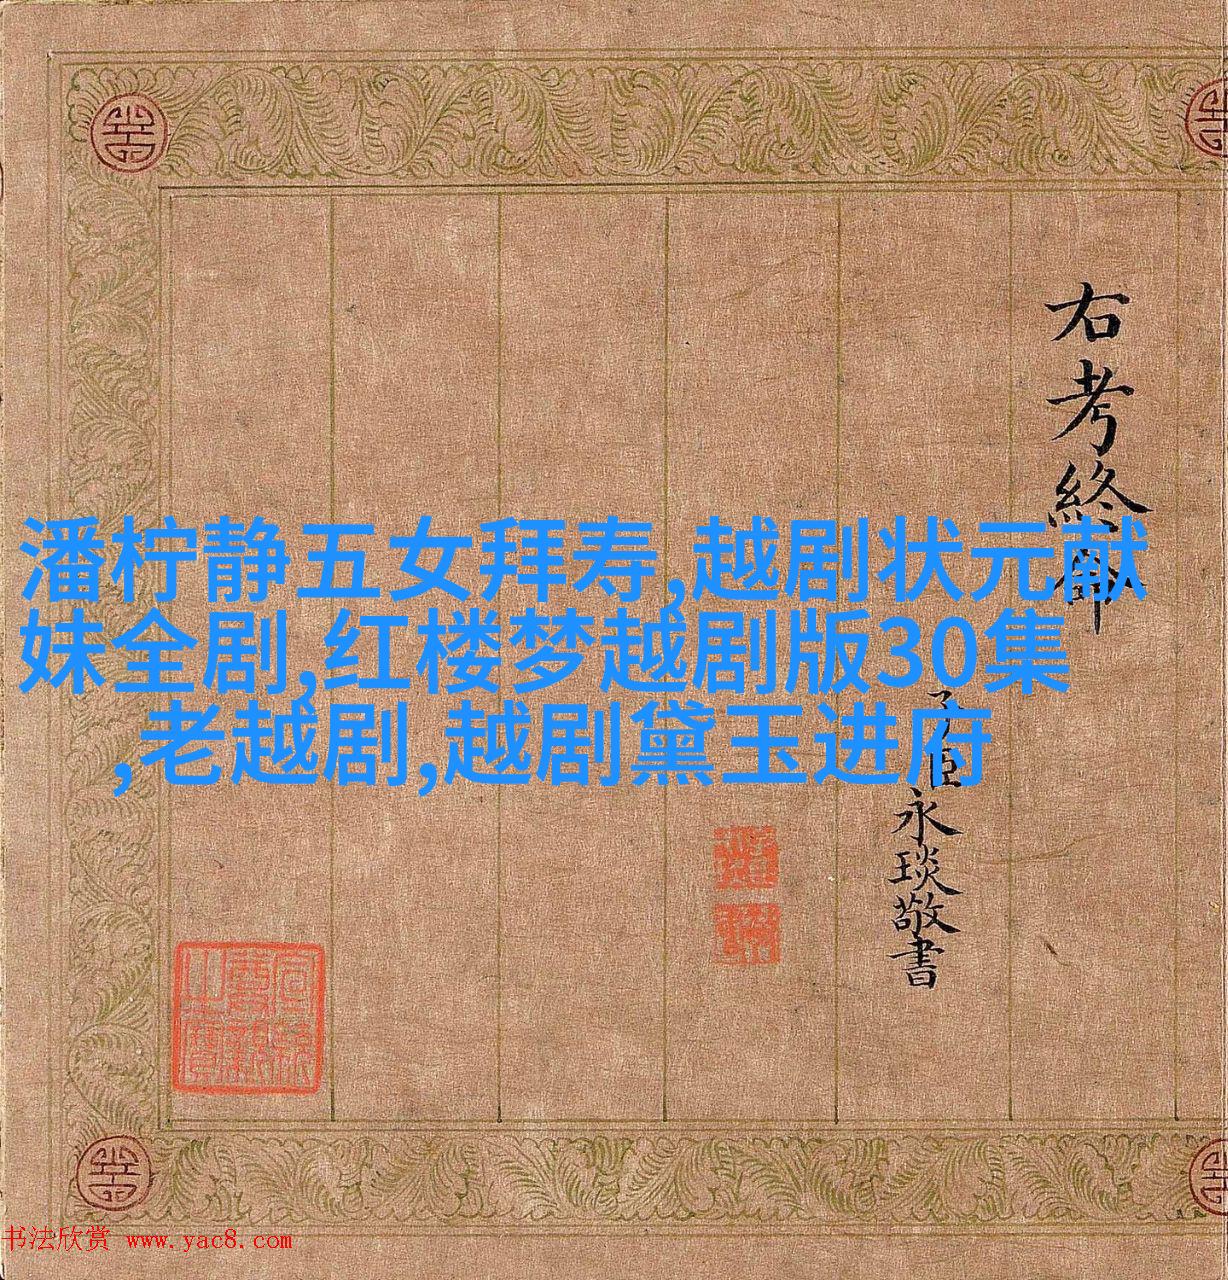 右考終命
子臣永琰敬書
潘柠静五女拜寿,越剧状元献
妹全剧,红楼梦越剧版30集
,老越剧,越剧黛玉进府
书法欣赏 www.yac8.com